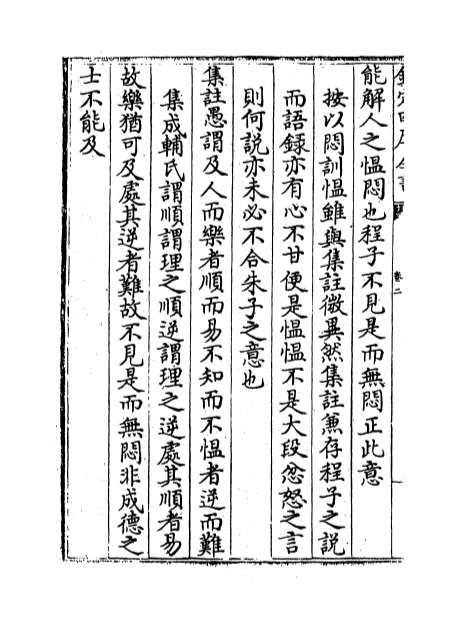 欽定四庫全書
卷二
能解人之愠悶也程子不見是而無悶正此意
按以悶訓愠雖與集註微異然集註兼存程子之說
而語録亦有心不甘便是愠愠不是大段忿怒之言
則何說亦未必不合朱子之意也
集註愚謂及人而樂者順而易不知而不愠者逆而難
集成輔氏謂順謂理之順逆謂理之逆處其順者易
故樂猶可及處其逆者難故不見是而無悶非成德之
士不能及